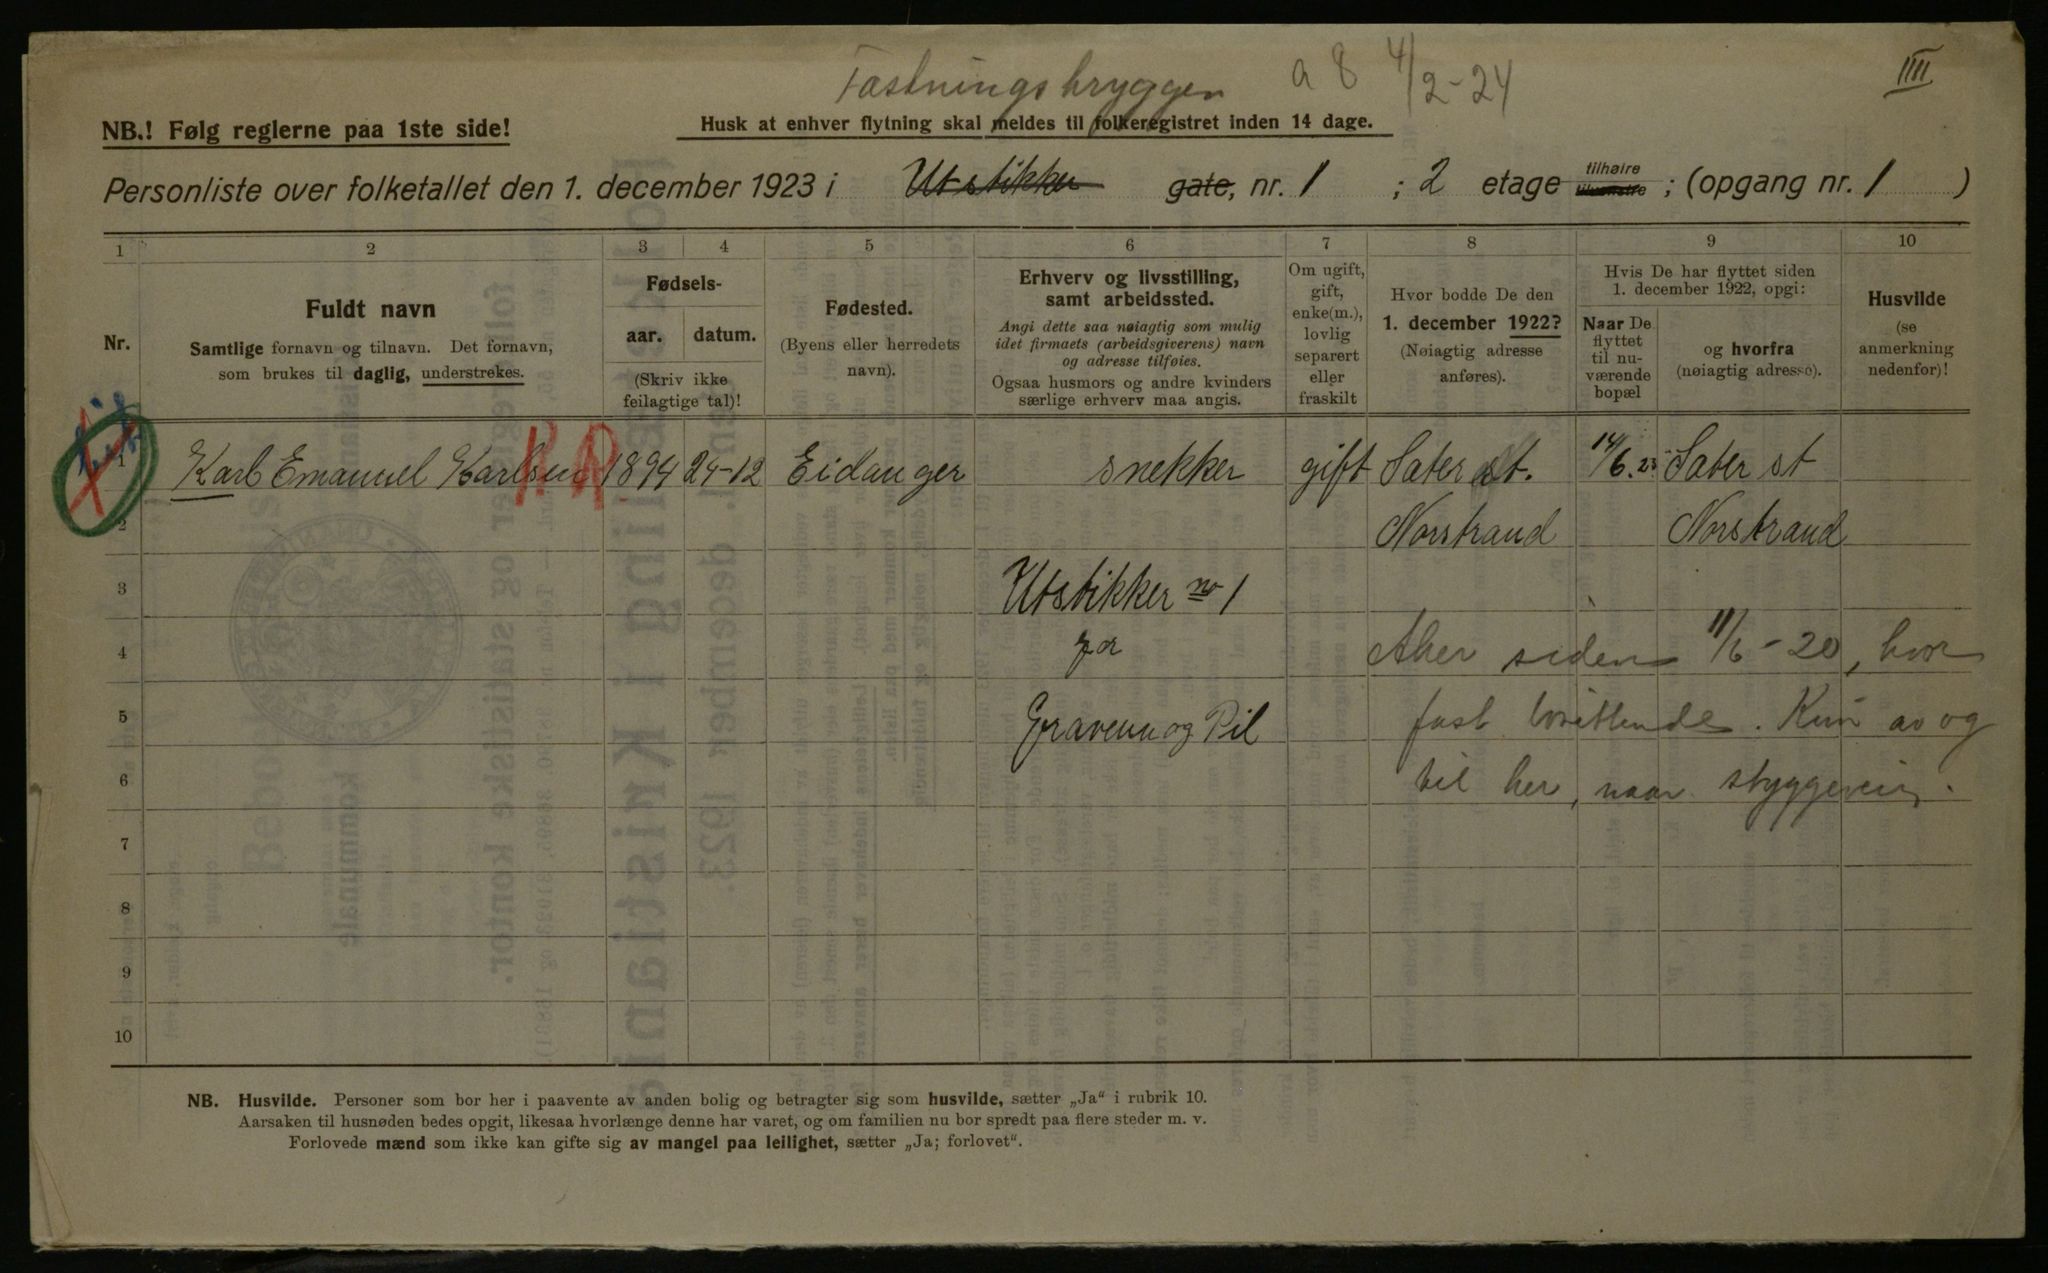 Fæstningsbryggen a 8 4/2-24 IIIII
NB.! Følg reglerne paa 1ste side!
Husk at enhver flytning skal meldes til folkeregistret inden 14 dage.
Personliste over folketallet den 1. december 1923 i Utstikker gate, nr. 1 ; 2 etage tilhøire tilvenstre ; (opgang nr. 1 )
1 2 3 4 5 6 7 8 9 10
Nr.
Fuldt navn
Samtlige fornavn og tilnavn. Det fornavn,
som brukes til daglig, understrekes.
Fødsels-
aar. datum.
(Skriv ikke
feilagtige tal)!
Fødested.
(Byens eller herredets
navn).
Erhverv og livsstilling,
samt arbeidssted.
Angi dette saa nøiagtig som mulig
idet firmaets (arbeidsgiverens) navn
og adresse tilføies.
Ogsaa husmors og andre kvinders
særlige erhverv maa angis.
Om ugift,
gift,
enke(m.),
lovlig
separert
eller
fraskilt
Hvor bodde De den
1. december 1922?
(Nøiagtig adresse
anføres).
Hvis De har flyttet siden
1. december 1922, opgi:
Naar De
flyttet
til nu-
værende
bopæl
og hvorfra
(nøiagtig adresse).
Husvilde
(se
anmerkning
nedenfor)!
1 Karl Emanuel Karlsen 1894 24-12 Eidanger snekker gift Sater st. 14/6.23 Sater st
2 Norstrand Norstrand
3 Utstikker no 1
4 Aker siden 11/6-20, hvor
5 Gravenu og Pil fast Kun av og
6 til her, naar styggeveir.
7
8
9
10
NB. Husvilde. Personer som bor her i paavente av anden bolig og betragter sig som husvilde, sætter „Ja“ i rubrik 10.
Aarsaken til husnøden bedes opgit, likesaa hvorlænge denne har varet, og om familien nu bor spredt paa flere steder m. v.
Forlovede mænd som ikke kan gifte sig av mangel paa leilighet, sætter „Ja; forlovet“.